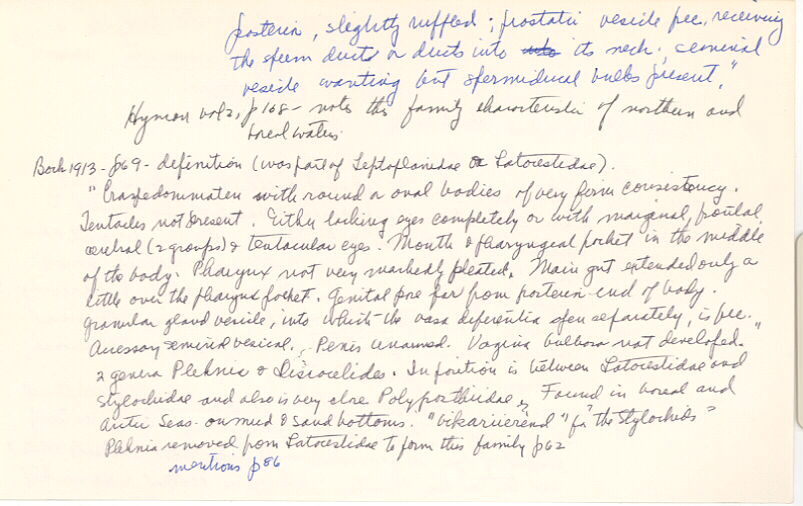 posterior, slightly ruffled; prostatic vesicle free, receiving
the sperm ducts or ducts into its neck; seminal
vesicle wanting but spermiducal bulbs present."
Hyman vol 2, p 168 - notes this family characteristic of northern and
boreal waters.
Bock 1913 - p69 - definition (was part of Leptoplanidae & Latocestidae).
"Craspedommaten with round or oval bodies of very firm consistency.
Tentacles not present. Either lacking eyes completely or with marginal, frontal,
cerebral (2 groups) & tentacular eyes. Mouth & pharyngeal pocket in the middle
of the body. Pharynx not very markedly pleated. Main gut extended only a
little over the pharynx pocket. Genital pore far from posterior end of body.
Granular gland vesicle, into which the vasa deferentia open separately, is free.
Accessory seminal vesical. Penis unarmed. Vagina bulbosa not developed."
2 genera Plehnia & Discocelides. In position is between Latocestidae and
Stylochidae and also is very close Polyposthiidae. Found in boreal and
Arctic Seas - on mud & sand bottoms. "vikariierend" "für the Stylochids"
Plehnia removed from Latocestidae to form this family p62
mentions p86